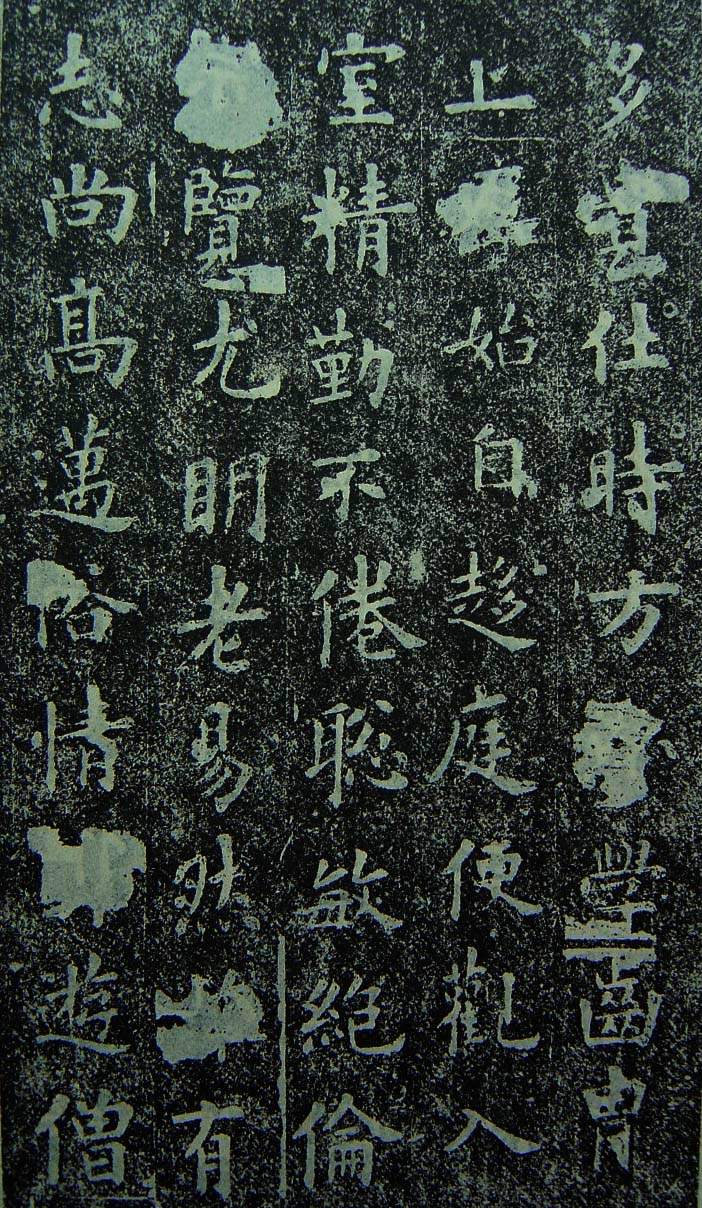 多宦仕時方學齒胄
上始自趍庭便觀入
室精勤不倦聡敏絕倫
覽尤明老易然有
志尚高邁俗情遊僧